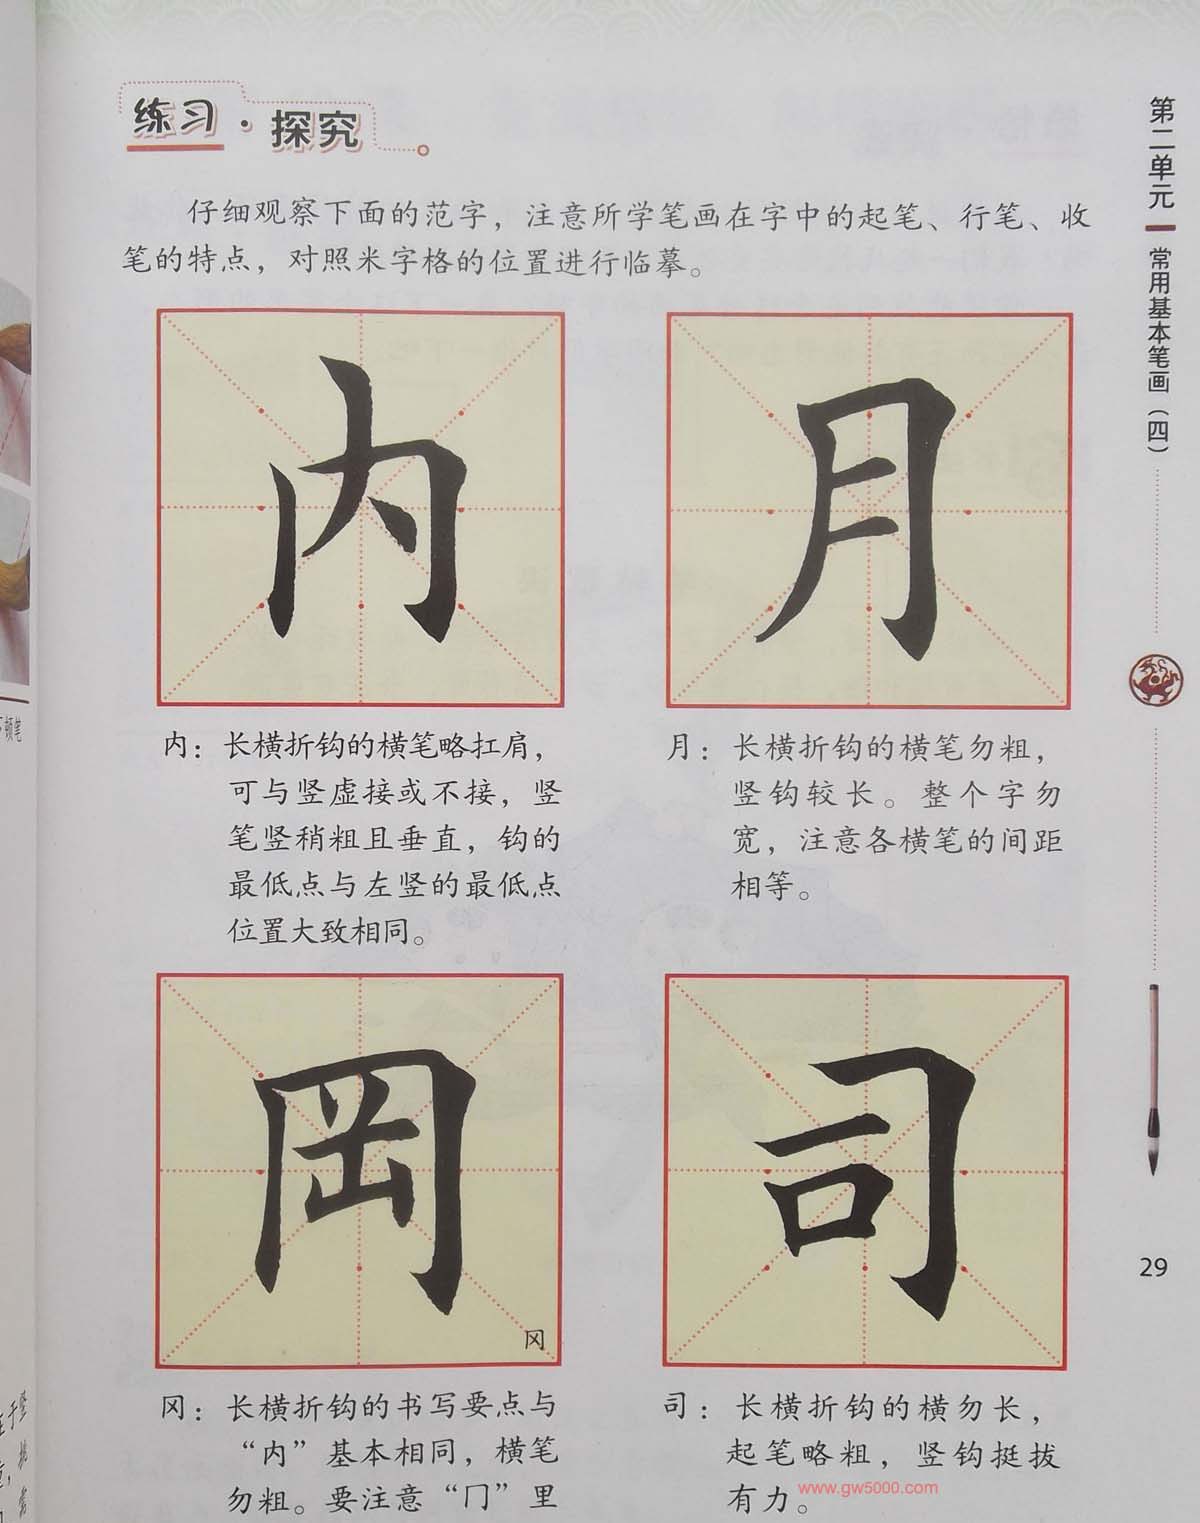 练习·探究
仔细观察下面的范字，注意所学笔画在字中的起笔、行笔、收
笔的特点，对照米字格的位置进行临摹。
内
月
内：长横折钩的横笔略扛肩，
可与竖虚接或不接，竖
笔竖稍粗且垂直，钩的
最低点与左竖的最低点
位置大致相同。
月：长横折钩的横笔勿粗，
竖钩较长。整个字勿
宽，注意各横笔的间距
相等。
岡
冈
司
冈：长横折钩的书写要点与
“内”基本相同，横笔
勿粗。要注意“冂”里
司：长横折钩的横勿长，
起笔略粗，竖钩挺拔
有力。
www.gw5000.com
第二单元
常用基本笔画（四）
29
顿笔